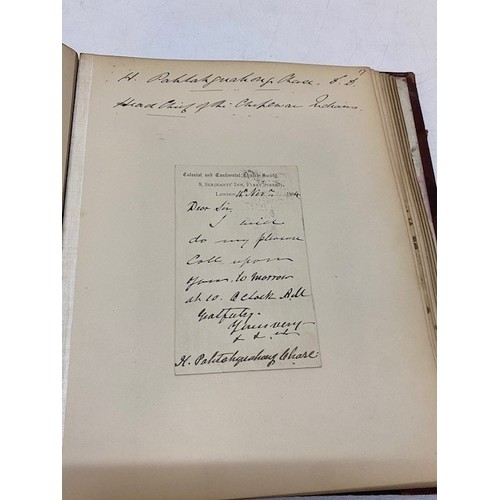 H. Pahtahquahong Chase. D. D.
Head Chief of the Chipewar Indians
Colonial and Continental Church Society,
9, Serjeants' Inn, Fleet Street,
London, Nov. 1884
Dear Sir,
I will
do my pleasure
Call upon
Yours to morrow
at 10. O'Clock A.M
Yours very
H. Pahtahquahong Chase.